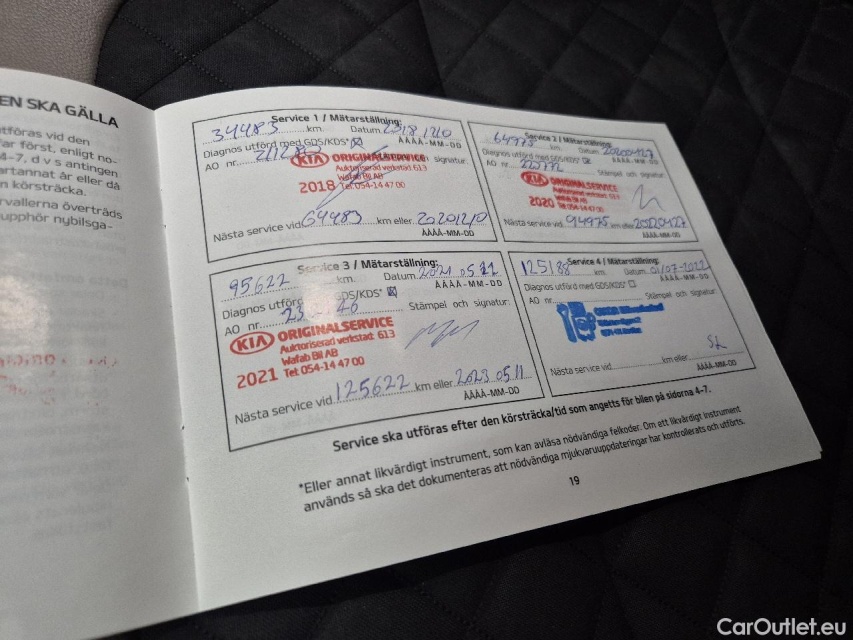 EN SKA GÄLLA
tföras vid den
ar först, enligt no-
4-7, d v s antingen
artannat år eller då
n körsträcka.
rvallerna överträds
upphör nybilsga-
Service 1 / Mätarställning:
34483 km. Datum 2018 1210
Diagnos utförd med GDS/KDS* ÅÅÅÅ-MM-DD
AO nr. signatur:
KIA ORIGINALSERVICE
Auktoriserad verkstad 613
Wafab Bil AB
2018 Tel: 054-14 47 00
Nästa service vid 64483 km eller 20201210
ÅÅÅÅ-MM-DD
Service 2 / Mätarställning:
64975 km. Datum 20200427
Diagnos utförd med GDS/KDS* ÅÅÅÅ-MM-DD
AO nr. Stämpel och signatur:
KIA ORIGINALSERVICE
Auktoriserad verkstad: 613
Wafab Bil AB
2020 Tel: 054-14 47 00
Nästa service vid 94975 km eller 20220427
ÅÅÅÅ-MM-DD
Service 3 / Mätarställning:
95622 km. Datum 2021 05 11
Diagnos utförd GDS/KDS* ÅÅÅÅ-MM-DD
AO nr. Stämpel och signatur:
KIA ORIGINALSERVICE
Auktoriserad verkstad: 613
Wafab Bil AB
2021 Tel: 054-14 47 00
Nästa service vid 125622 km eller 2023 05 11
ÅÅÅÅ-MM-DD
Service 4 / Mätarställning:
125188 km. Datum 01/07-2022
Diagnos utförd med GDS/KDS* ☐ ÅÅÅÅ-MM-DD
AO nr. Stämpel och signatur:
Nästa service vid km eller
ÅÅÅÅ-MM-DD
Service ska utföras efter den körsträcka/tid som angetts för bilen på sidorna 4-7.
*Eller annat likvärdigt instrument, som kan avläsa nödvändiga felkoder. Om ett likvärdigt instrument
används så ska det dokumenteras att nödvändiga mjukvaruuppdateringar har kontrollerats och utförts.
19
CarOutlet.eu